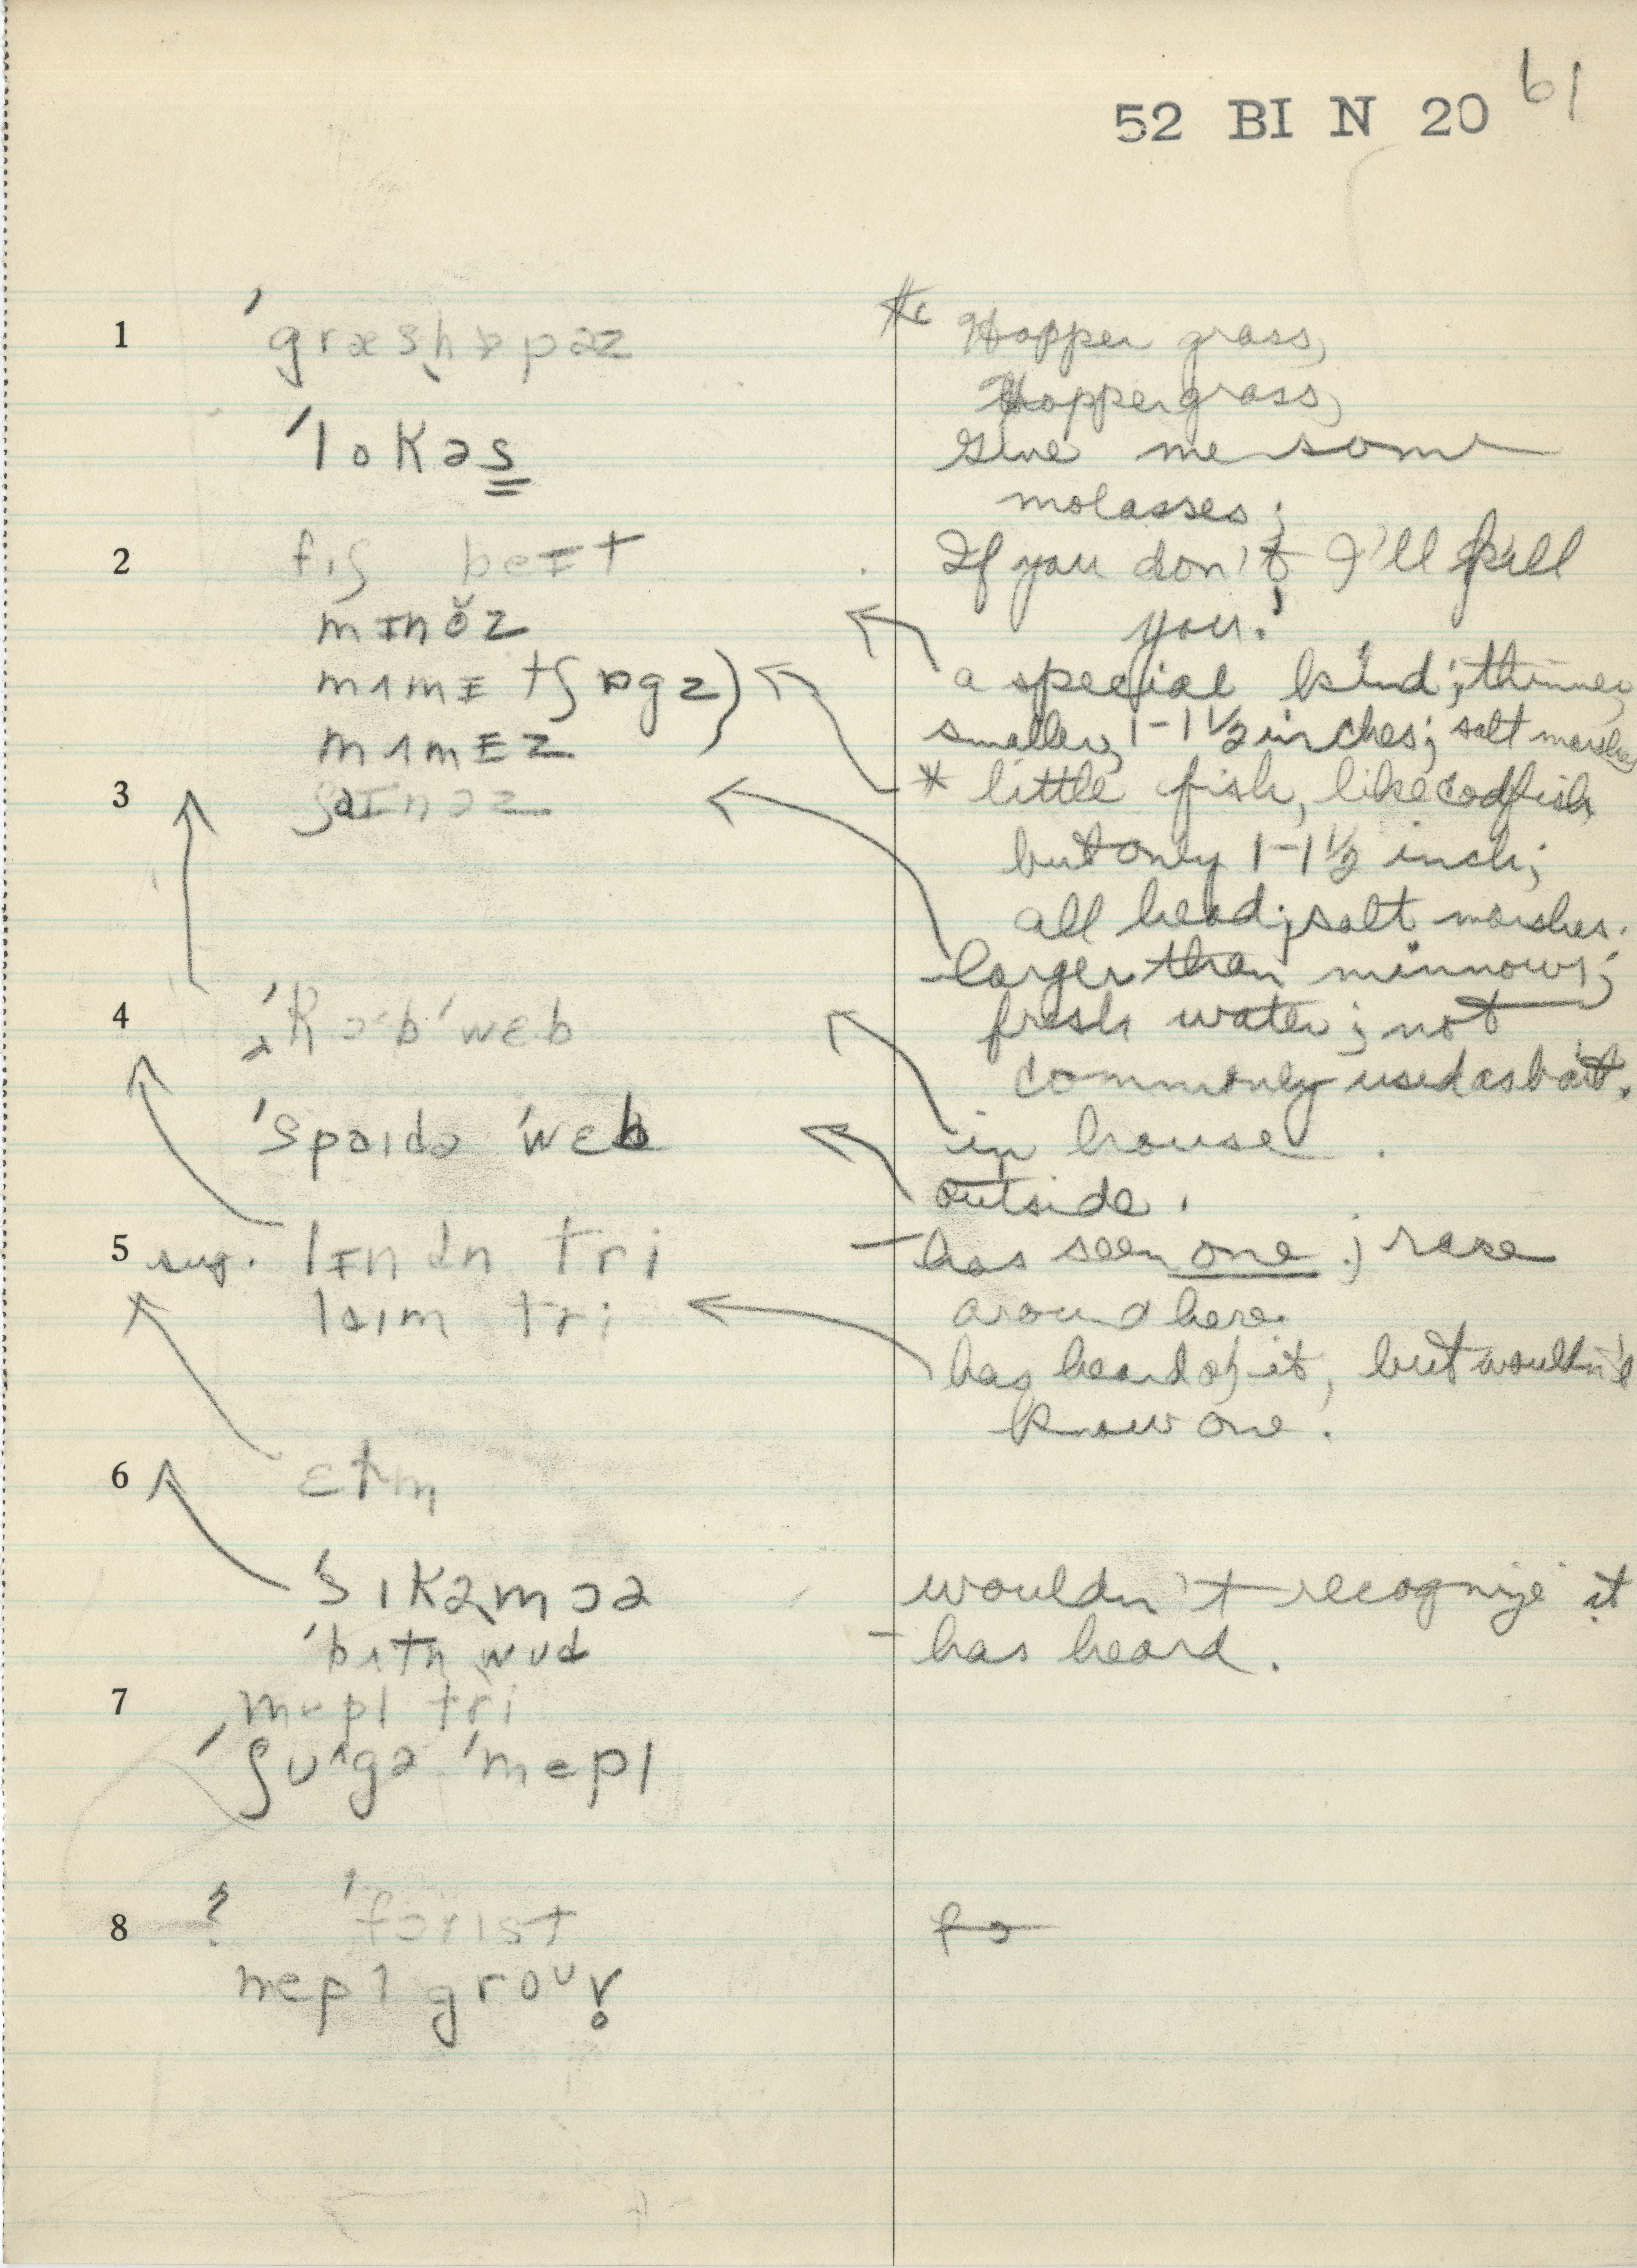 52 BI N 20 61
1 ˈgræshɒpəz
* Hopper grass,
Hoppergrass,
ˈlokəs
Give me some
molasses;
2 fɪʃ beɪt
If you don't I'll kill
mɪnŏz
you!
mʌmɪ tʃɒgz)
a special kind; thinner,
mʌmɪz
smaller, 1-1 1/2 inches; salt marshes
3 ʃaɪnəz
* little fish, like codfish,
but only 1-1 1/2 inch;
all head; salt marshes.
- larger than minnows;
4 ˈkɔb ˈwɛb
fresh water; not
commonly used as bait.
ˈspaɪdə ˈwɛb
in house.
outside.
5 sug. lɪndn tri
- has seen one; rare
laɪm tri
around here.
has heard of it, but wouldn't
know one.
6 ɛtm
ˈsɪkəmɔə
wouldn't recognize it
ˈbʌtn wʊd
- has heard.
7 mepl tri
ˈʃʊgə ˈmepl
8 ? ˈfɔrɪst
fɔ
mepl groʊv̥